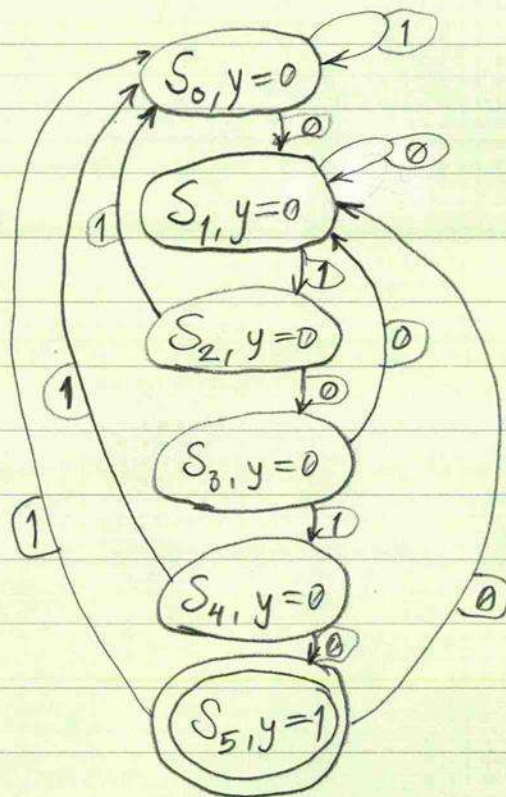 S₀, y=0
1
0
S₁, y=0
0
1
1
S₂, y=0
0
0
1
S₃, y=0
1
1
S₄, y=0
0
0
S₅, y=1